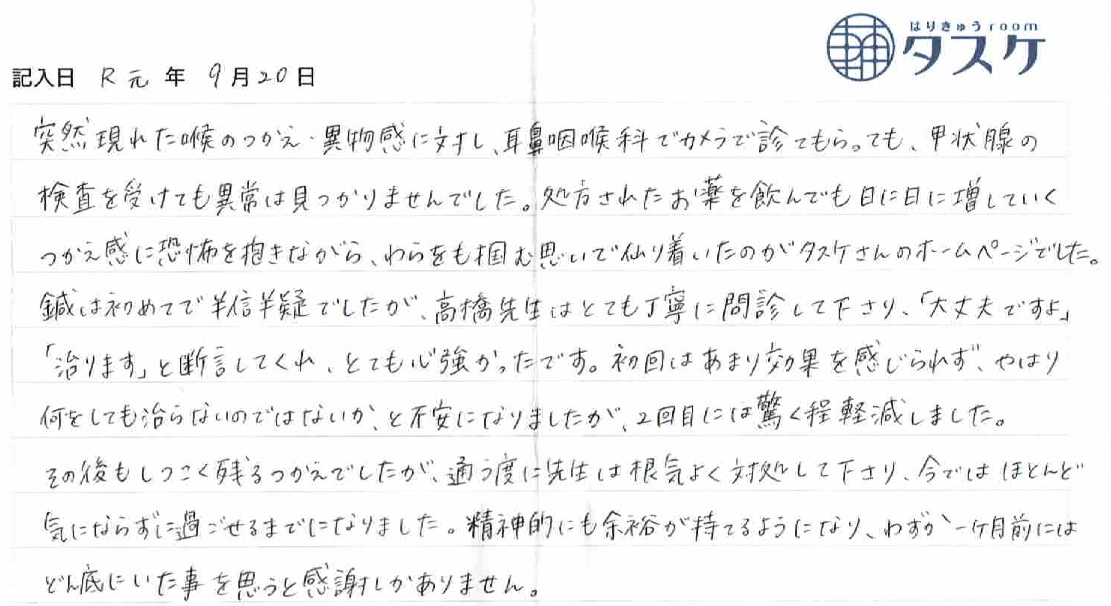 はりきゅうroom
タスケ
記入日 R元年 9月20日
突然現れた喉のつかえ・異物感に対し、耳鼻咽喉科でカメラで診てもらっても、甲状腺の
検査を受けても異常は見つかりませんでした。処方されたお薬を飲んでも日に日に増していく
つかえ感に恐怖を抱きながら、わらをも掴む思いで辿り着いたのがタスケさんのホームページでした。
鍼は初めてで半信半疑でしたが、高橋先生はとても丁寧に問診して下さり、「大丈夫ですよ」
「治ります」と断言してくれ、とても心強かったです。初回はあまり効果を感じられず、やはり
何をしても治らないのではないか、と不安になりましたが、2回目には驚く程軽減しました。
その後もしつこく残るつかえでしたが、通う度に先生は根気よく対処して下さり、今ではほとんど
気にならずに過ごせるまでになりました。精神的にも余裕が持てるようになり、わずか一ヶ月前には
どん底にいた事を思うと感謝しかありません。